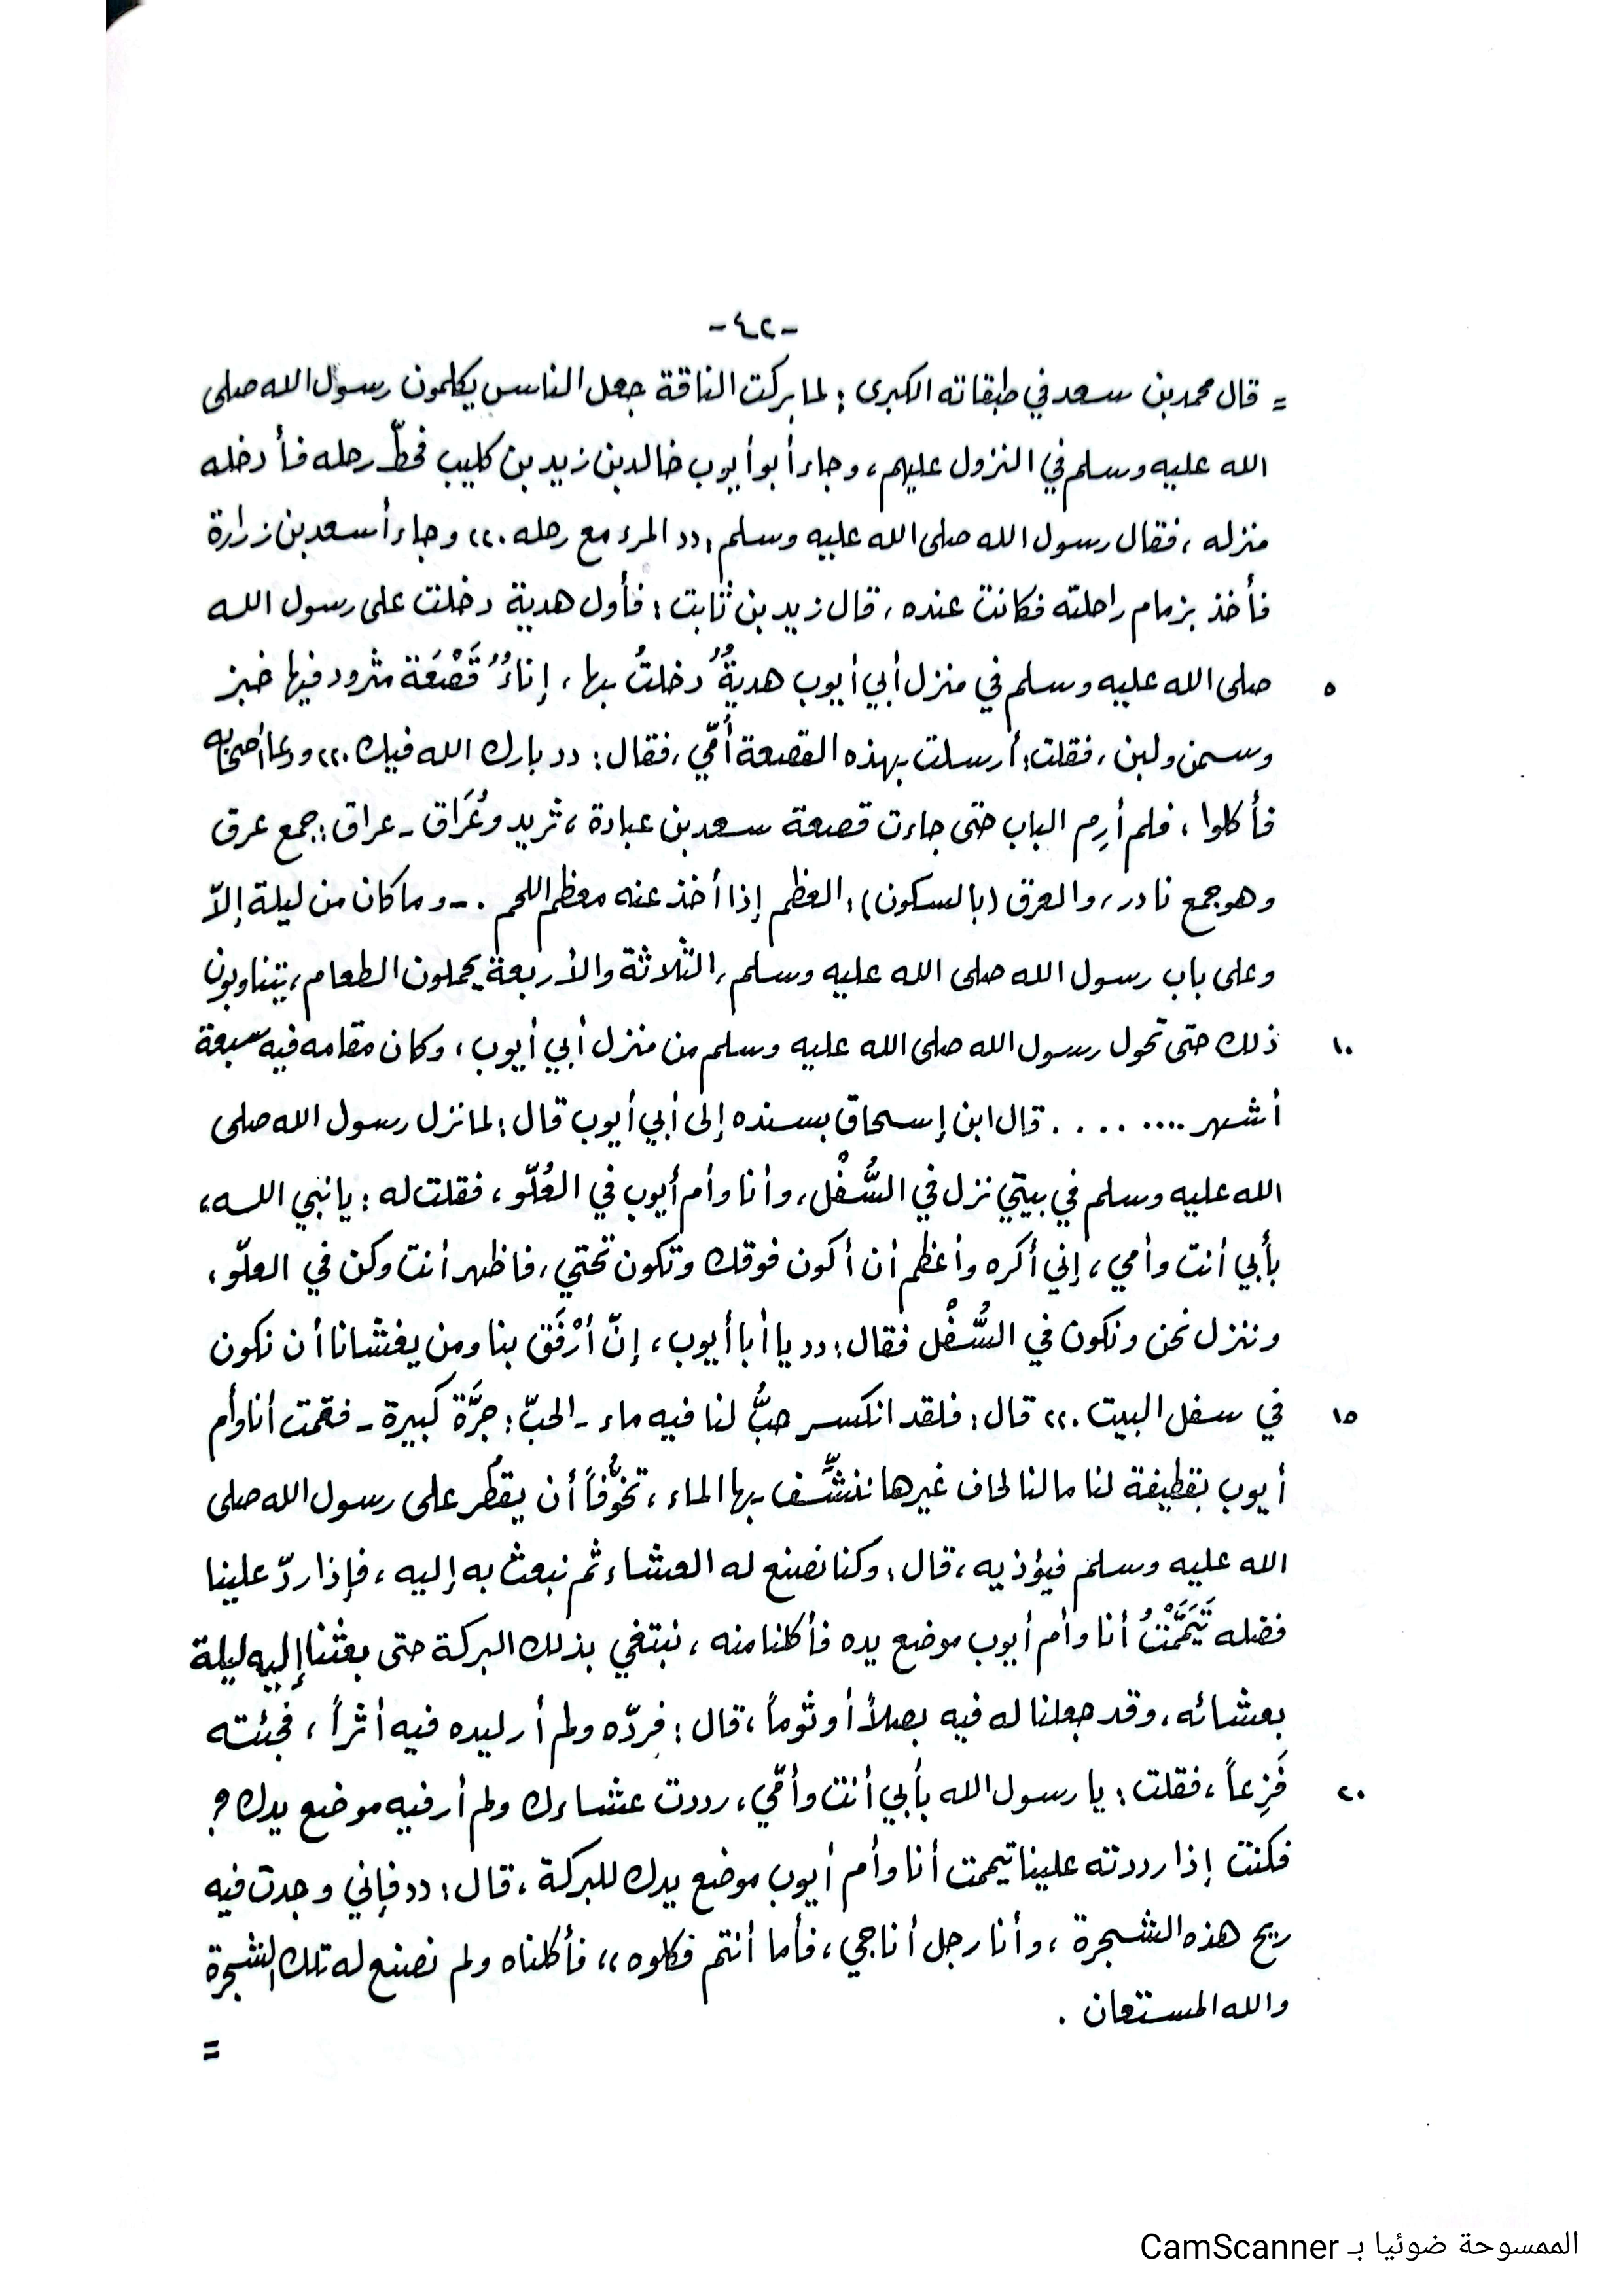 -٤٢-
= قال محمد بن سعد في طبقاته الكبرى : لما بركت الناقة جعل الناس يكلمون رسول الله صلى
الله عليه وسلم في النزول عليهم ، وجاء أبو أيوب خالد بن زيد بن كليب فحطّ رحله فأدخله
منزله ، فقال رسول الله صلى الله عليه وسلم : (( المرء مع رحله . )) وجاء أسعد بن زرارة
فأخذ بزمام راحلته فكانت عنده ، قال زيد بن ثابت : فأول هدية دخلت على رسول الله
٥ صلى الله عليه وسلم في منزل أبي أيوب هديةٌ دخلتُ بها ، إناءٌ قَصْعَة مثرود فيها خبز
وسمن ولبن ، فقلت : أرسلت بهذه القصعة أمّي ، فقال : (( بارك الله فيك . )) ودعا أصحابه
فأكلوا ، فلم أرِم الباب حتى جاءت قصعة سعد بن عبادة ، ثريد وعُرَاق - عراق : جمع عرق
وهو جمع نادر ، والعرق (بالسكون) : العظم إذا أخذ عنه معظم اللحم . - وما كان من ليلة إلاّ
وعلى باب رسول الله صلى الله عليه وسلم ، الثلاثة والأربعة يحملون الطعام ، يتناوبون
١٠ ذلك حتى تحول رسول الله صلى الله عليه وسلم من منزل أبي أيوب ، وكان مقامه فيه سبعة
أشهر ........ قال ابن إسحاق بسنده إلى أبي أيوب قال : لما نزل رسول الله صلى
الله عليه وسلم في بيتي نزل في السُّفْل ، وأنا وأم أيوب في العُلّو ، فقلت له : يا نبي الله ،
بأبي أنت وأمي ، إني أكره وأعظم أن أكون فوقك وتكون تحتي ، فاظهر أنت وكن في العلّو ،
وننزل نحن ونكون في السُّفْل فقال : (( يا أبا أيوب ، إنّ أرْفَق بنا ومن يغشانا أن نكون
١٥ في سفل البيت . )) قال : فلقد انكسر حبُّ لنا فيه ماء - الحبّ : جرَّة كبيرة - فقمت أنا وأم
أيوب بقطيفة لنا ما لنا لحاف غيرها ننشِّف بها الماء ، تخوُّفاً أن يقطُر على رسول الله صلى
الله عليه وسلم فيؤذيه ، قال : وكنا نصنع له العشاء ثم نبعث به إليه ، فإذا ردّ علينا
فضله تَيَمَّمْتُ أنا وأم أيوب موضع يده فأكلنا منه ، نبتغي بذلك البركة حتى بعثنا إليه ليلة
بعشائه ، وقد جعلنا له فيه بصلاً أو ثوماً ، قال : فردّه ولم أر ليده فيه أثراً ، فجئته
٢٠ فَزِعاً ، فقلت : يا رسول الله بأبي أنت وأمّي ، رددت عشاءك ولم أر فيه موضع يدك ؟
فكنت إذا رددته علينا تيممت أنا وأم أيوب موضع يدك للبركة ، قال : (( فإني وجدت فيه
ريح هذه الشجرة ، وأنا رجل أناجي ، فأما أنتم فكلوه )) فأكلناه ولم نصنع له تلك الشجرة
والله المستعان .
=
الممسوحة ضوئيا بـ CamScanner